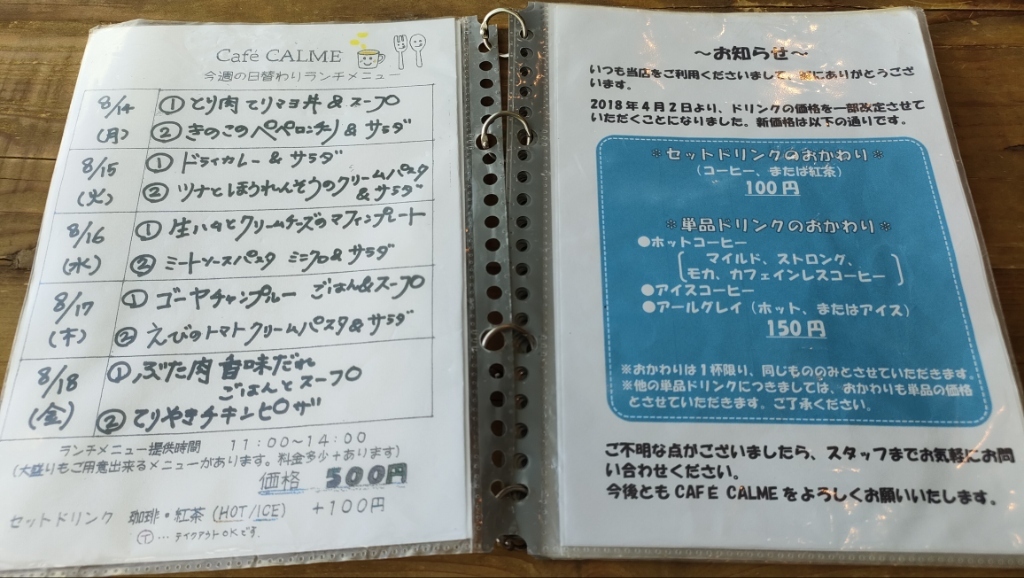 Café CALME
今週の日替わりランチメニュー
8/14
(月)
① とり肉てりマヨ丼 & スープ
② きのこのペペロンチーノ & サラダ
8/15
(火)
① ドライカレー & サラダ
② ツナとほうれんそうのクリームパスタ
& サラダ
8/16
(水)
① 生ハムとクリームチーズのマフィンプレート
② ミートソースパスタ ミニフロ & サラダ
8/17
(木)
① ゴーヤチャンプルー ごはん&スープ
② えびのトマトクリームパスタ & サラダ
8/18
(金)
① ぶた肉香味だれ
ごはんとスープ
② てりやきチキンピザ
ランチメニュー提供時間 11:00~14:00
(大盛りもご用意出来るメニューがあります。料金多少+あります)
価格 500円
セットドリンク 珈琲・紅茶 (HOT/ICE) +100円
Ⓣ … テイクアウトOKです。
~お知らせ~
いつも当店をご利用くださいまして、誠にありがとうござ
います。
2018年4月2日より、ドリンクの価格を一部改定させて
いただくことになりました。新価格は以下の通りです。
※セットドリンクのおかわり※
(コーヒー、または紅茶)
100円
※単品ドリンクのおかわり※
●ホットコーヒー
マイルド、ストロング、
モカ、カフェインレスコーヒー
●アイスコーヒー
●アールグレイ(ホット、またはアイス)
150円
※おかわりは1杯限り、同じもののみとさせていただきます。
※他の単品ドリンクにつきましては、おかわりも単品の価格
とさせていただきます。ご了承ください。
ご不明な点がございましたら、スタッフまでお気軽にお問
い合わせください。
今後とも CAFÉ CALME をよろしくお願いいたします。